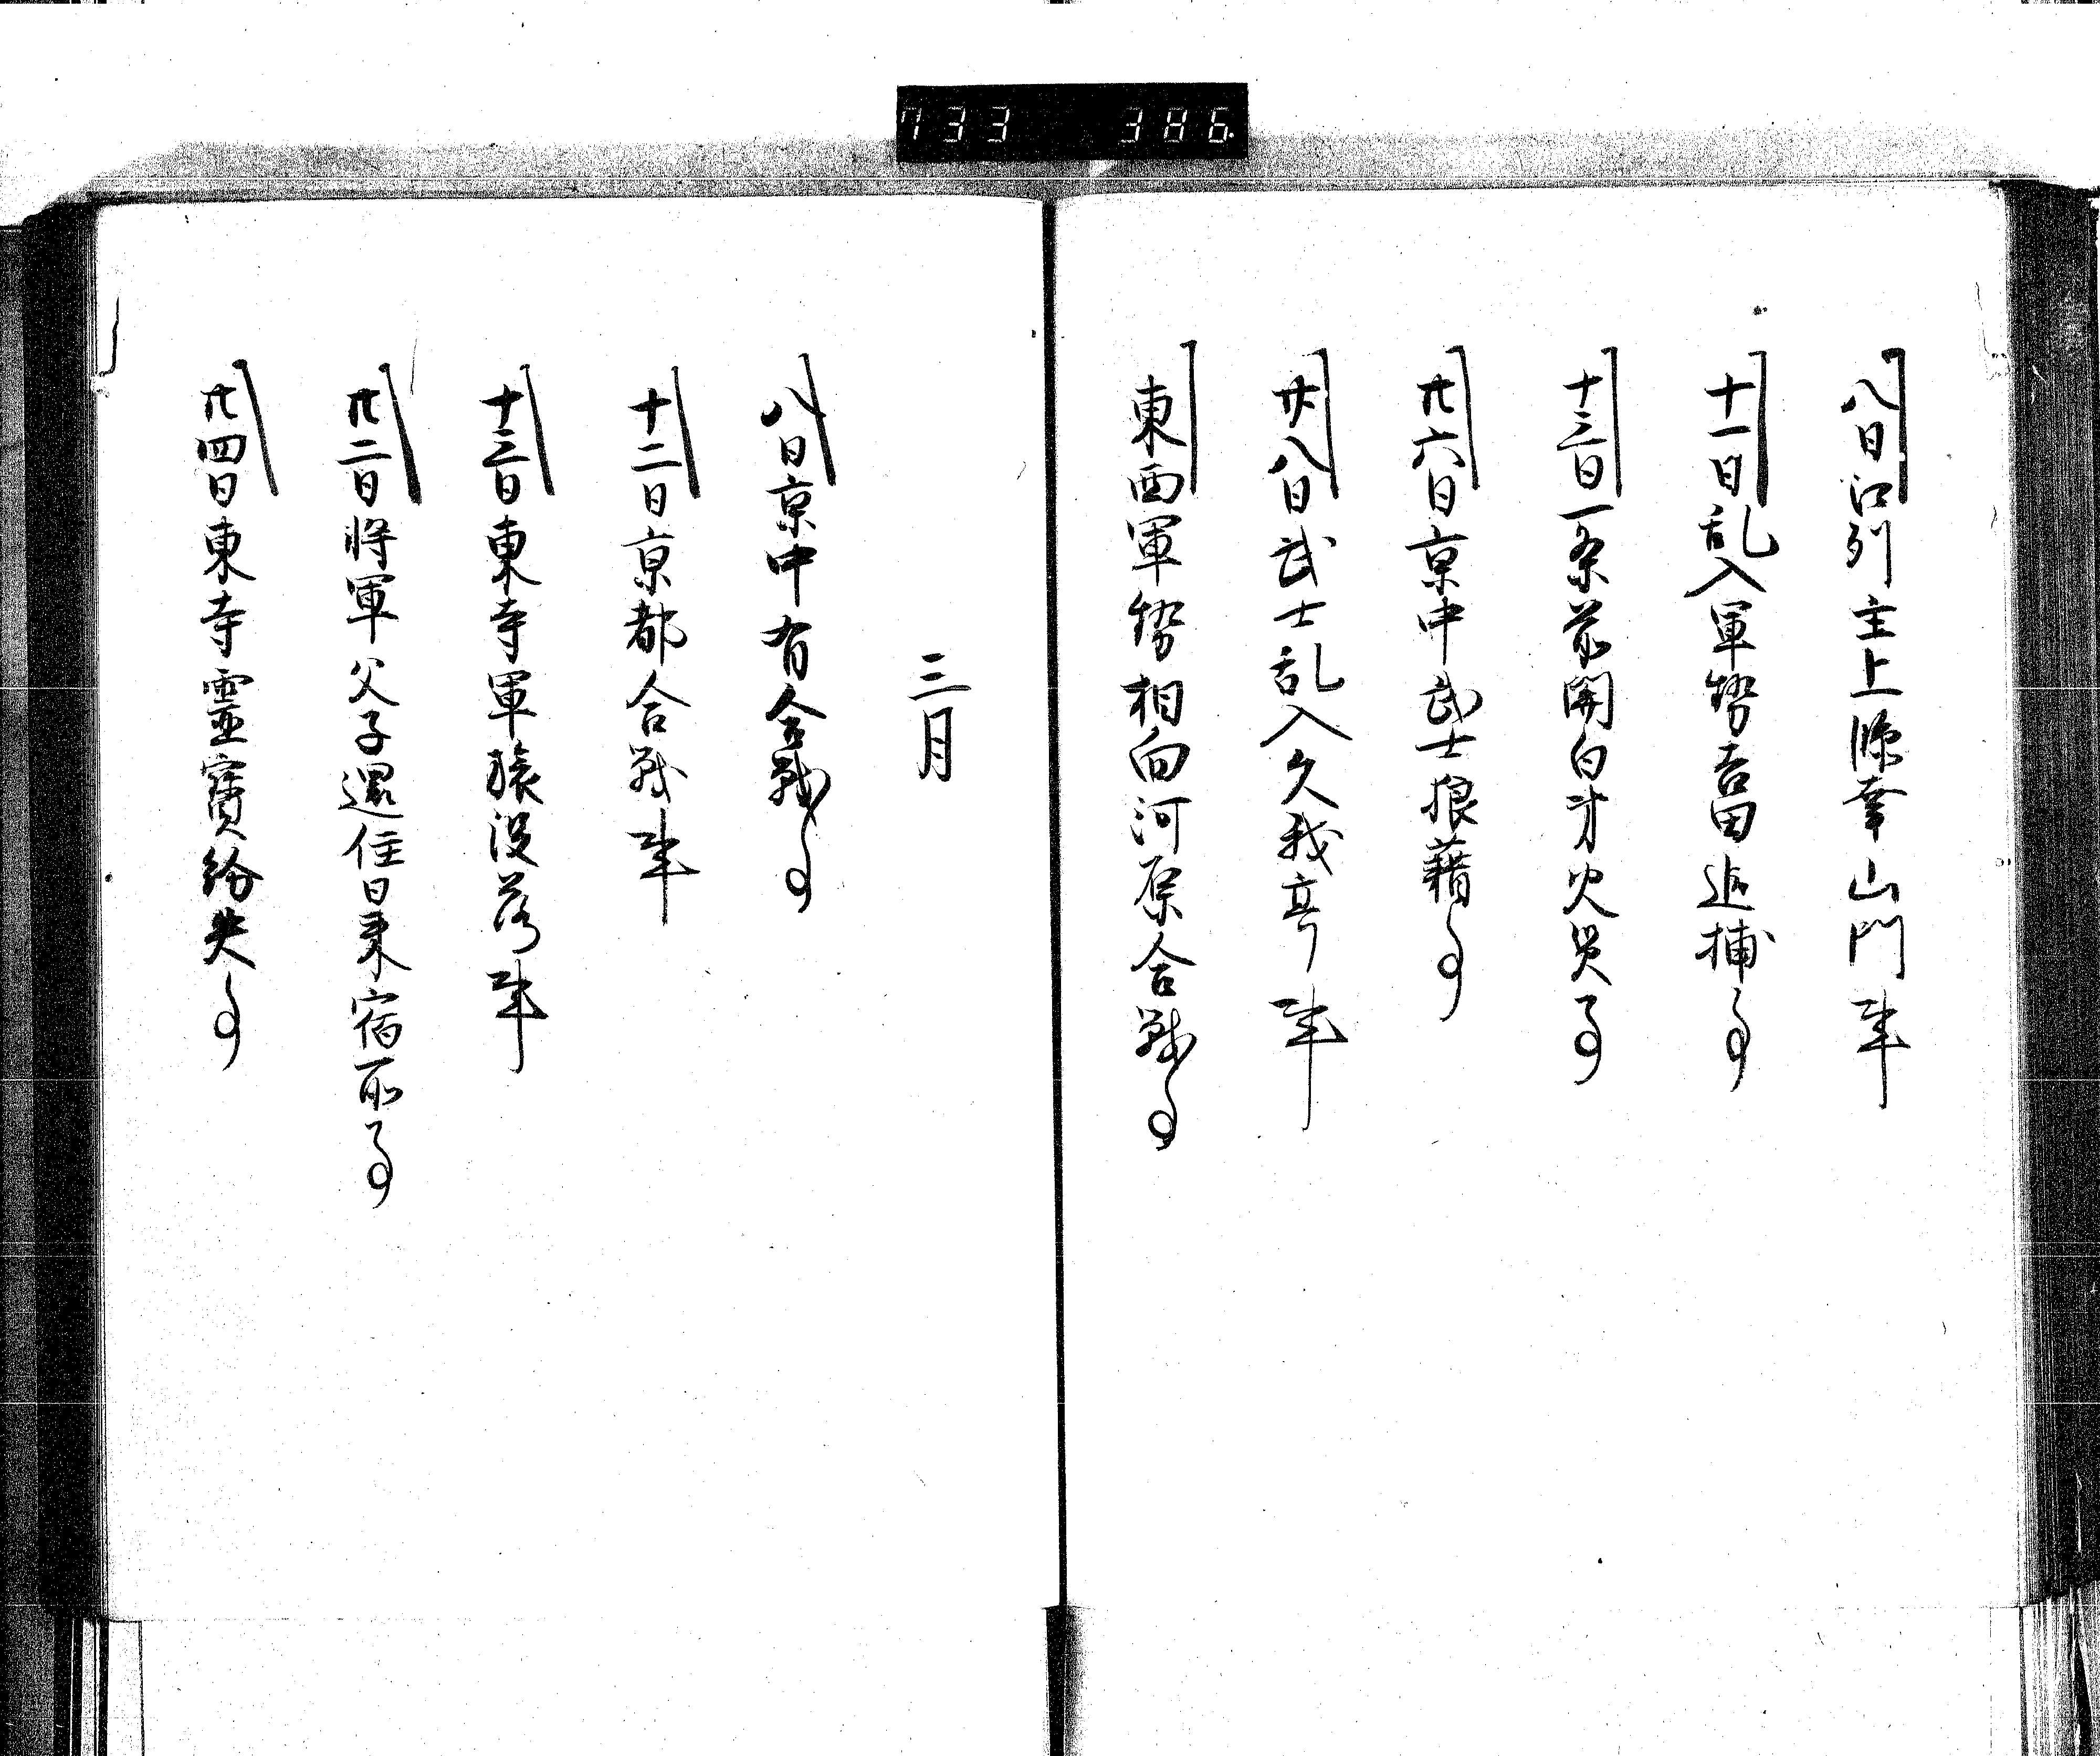 733 386
八日江州主上臨幸山門事
十一日乱入軍勢当畠追捕事
十三日一条前関白第火災事
廿六日京中武士狼藉事
廿八日武士乱入久我亭事
東西軍勢相向河原合戦事
三月
八日京中有合戦事
十二日京都合戦事
十三日東寺軍旅没落事
廿二日将軍父子還住日来宿所事
廿四日東寺靈寶紛失事